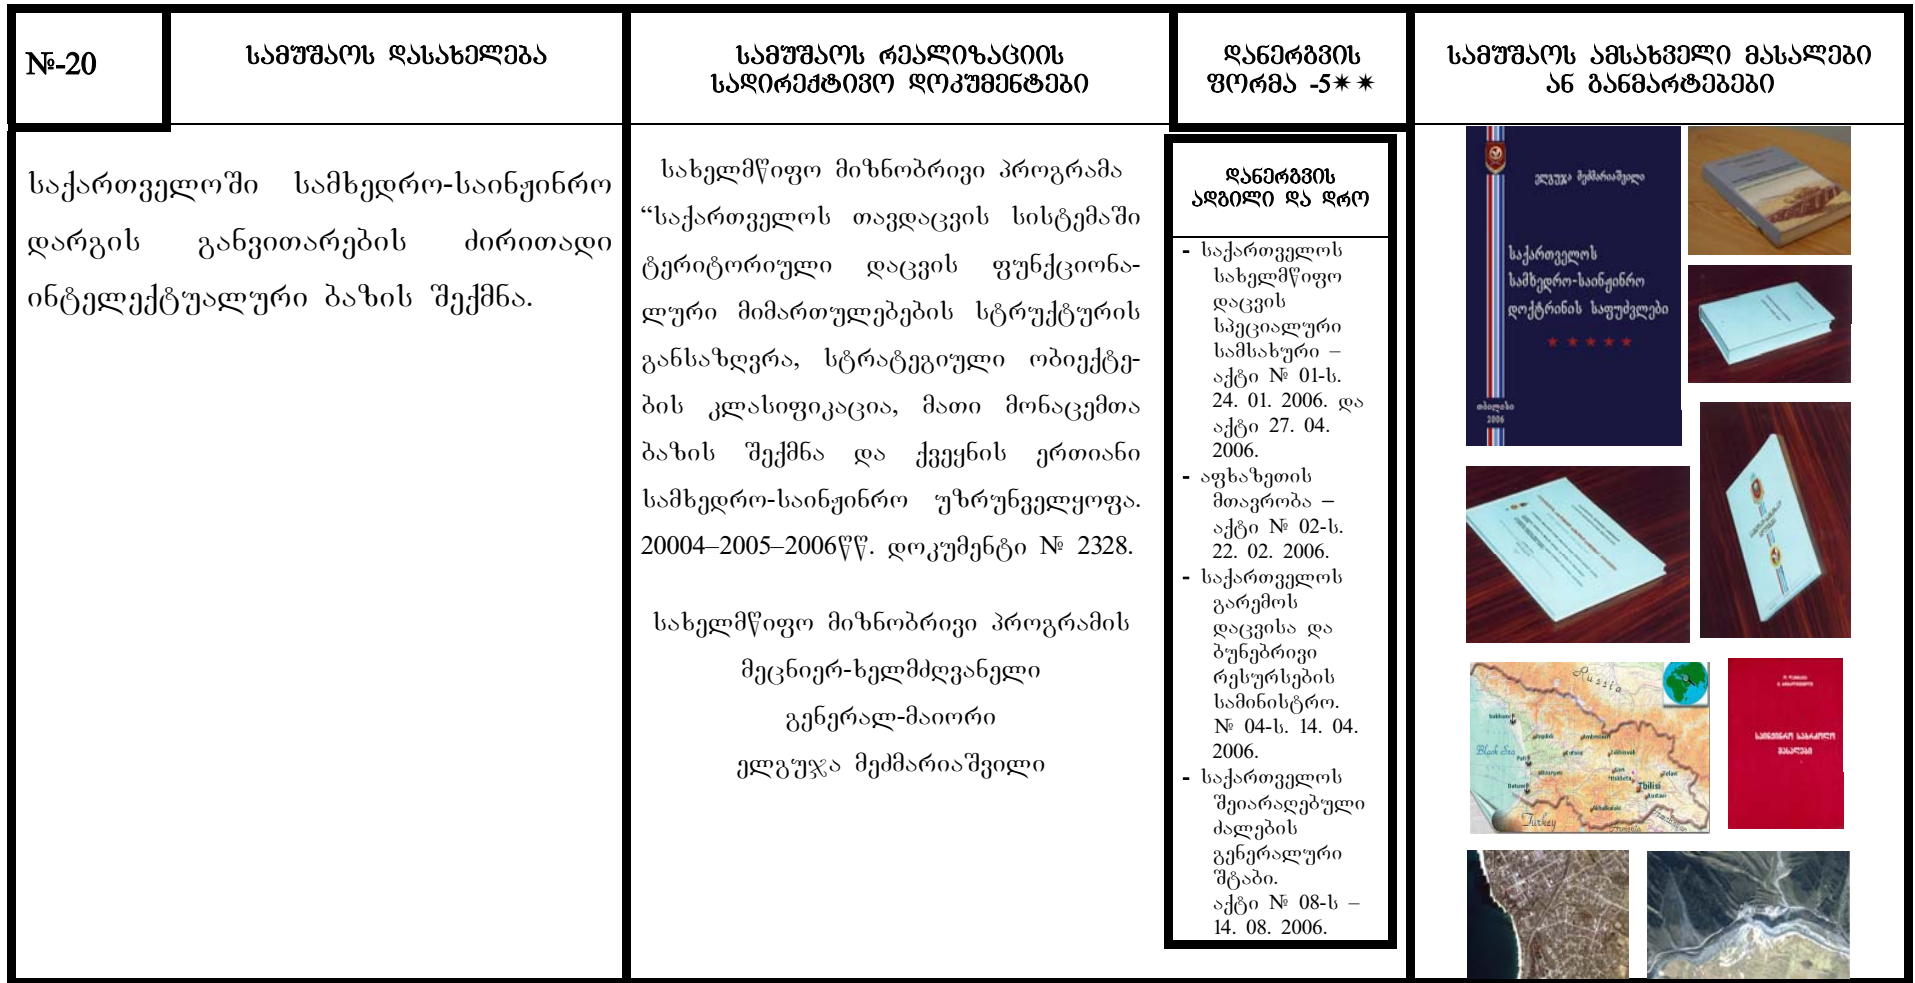 №-20
სამუშაოს დასახელება
სამუშაოს რეალიზაციის
სადირექტივო დოკუმენტები
დანერგვის
ფორმა -5✶✶
სამუშაოს ამსახველი მასალები
ან განმარტებები
საქართველოში სამხედრო-საინჟინრო
დარგის განვითარების ძირითადი
ინტელექტუალური ბაზის შექმნა.
სახელმწიფო მიზნობრივი პროგრამა
“საქართველოს თავდაცვის სისტემაში
ტერიტორიული დაცვის ფუნქციონა-
ლური მიმართულებების სტრუქტურის
განსაზღვრა, სტრატეგიული ობიექტე-
ბის კლასიფიკაცია, მათი მონაცემთა
ბაზის შექმნა და ქვეყნის ერთიანი
სამხედრო-საინჟინრო უზრუნველყოფა.
20004–2005–2006წწ. დოკუმენტი № 2328.
სახელმწიფო მიზნობრივი პროგრამის
მეცნიერ-ხელმძღვანელი
გენერალ-მაიორი
ელგუჯა მეძმარიაშვილი
დანერგვის
ადგილი და დრო
- საქართველოს
სახელმწიფო
დაცვის
სპეციალური
სამსახური –
აქტი № 01-ს.
24. 01. 2006. და
აქტი 27. 04.
2006.
- აფხაზეთის
მთავრობა –
აქტი № 02-ს.
22. 02. 2006.
- საქართველოს
გარემოს
დაცვისა და
ბუნებრივი
რესურსების
სამინისტრო.
№ 04-ს. 14. 04.
2006.
- საქართველოს
შეიარაღებული
ძალების
გენერალური
შტაბი.
აქტი № 08-ს –
14. 08. 2006.
ელგუჯა მეძმარიაშვილი
საქართველოს
სამხედრო-საინჟინრო
დოქტრინის საფუძვლები
★ ★ ★ ★ ★
თბილისი
2006
Russia
Black Sea
Poti
Kutaisi
Gori
Telavi
Tbilisi
Rustavi
Turkey
Armenia
საინჟინრო საბრძოლო
მასალები